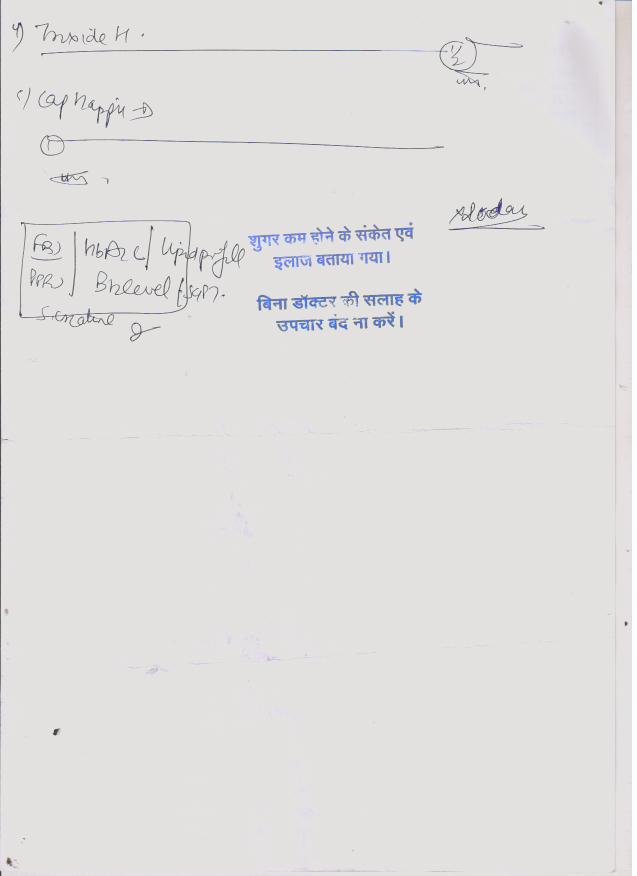 4) Inside H.
1/2
5) Cap Happi D
1
FBS / HbA1C / Lipid profile
PPBS / B12 level / SGPT.
S. creatinine
शुगर कम होने के संकेत एवं
इलाज बताया गया।
बिना डॉक्टर की सलाह के
उपचार बंद ना करें।